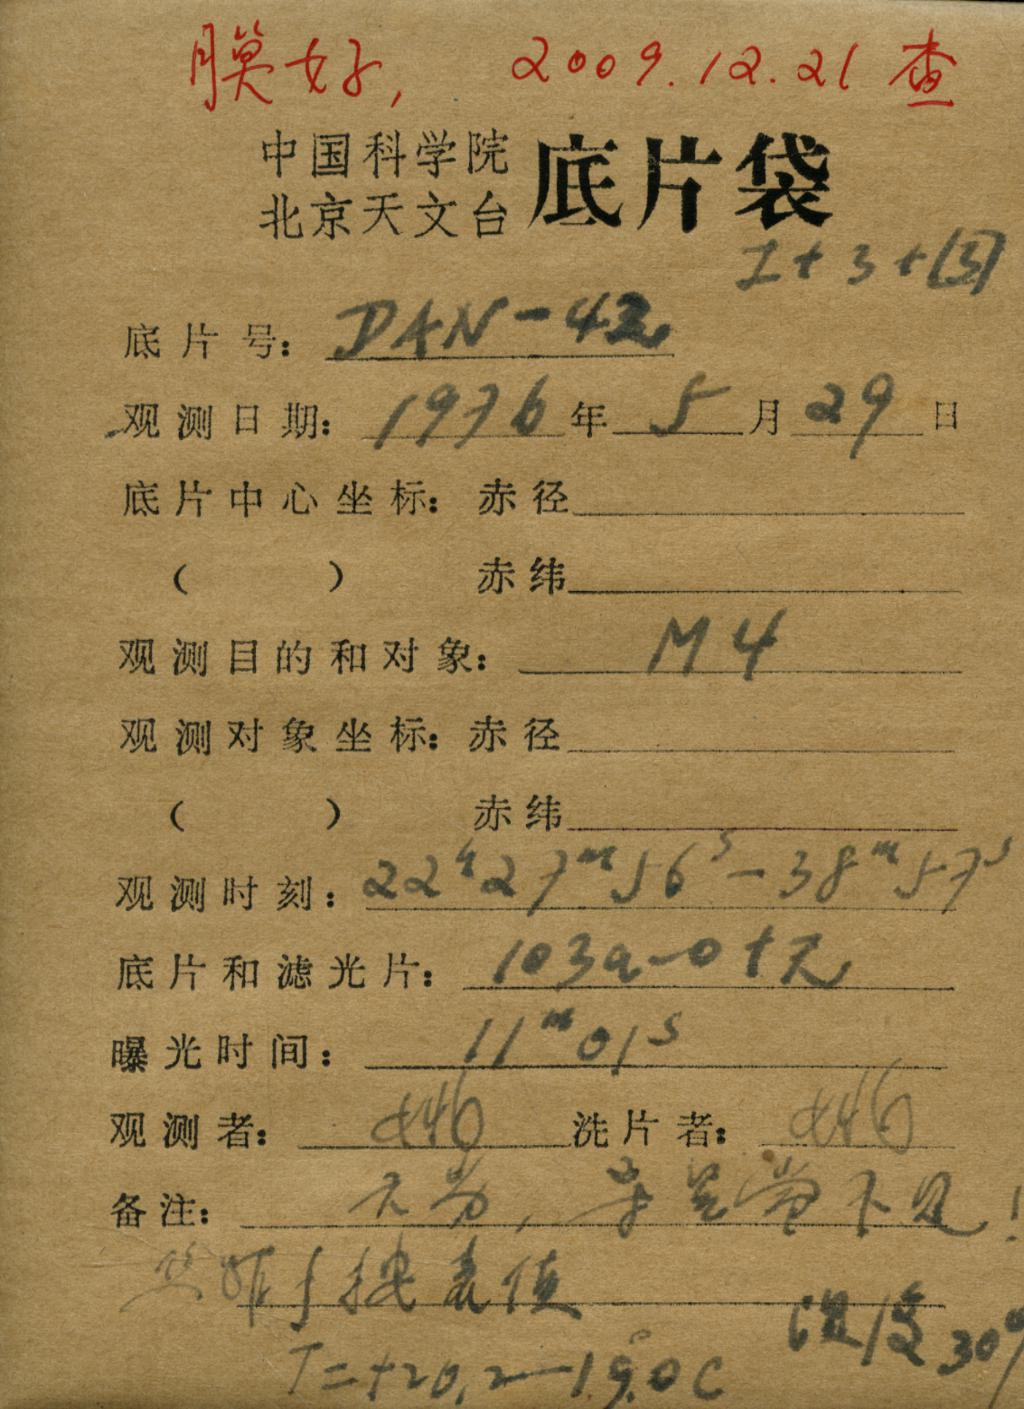 膜好, 2009.12.21 查
中国科学院
北京天文台 底片袋
I+3+③
底片号: DAN-42
观测日期: 1976 年 5 月 29 日
底片中心坐标: 赤径
( ) 赤纬
观测目的和对象: M4
观测对象坐标: 赤径
( ) 赤纬
观测时刻: 22h27m56s-38m57s
底片和滤光片: 103a-O+无
曝光时间: 11m01s
观测者: 洗片者:
备注: 导星常不见!
按表值
湿度30%
T=+20.2—19.0C